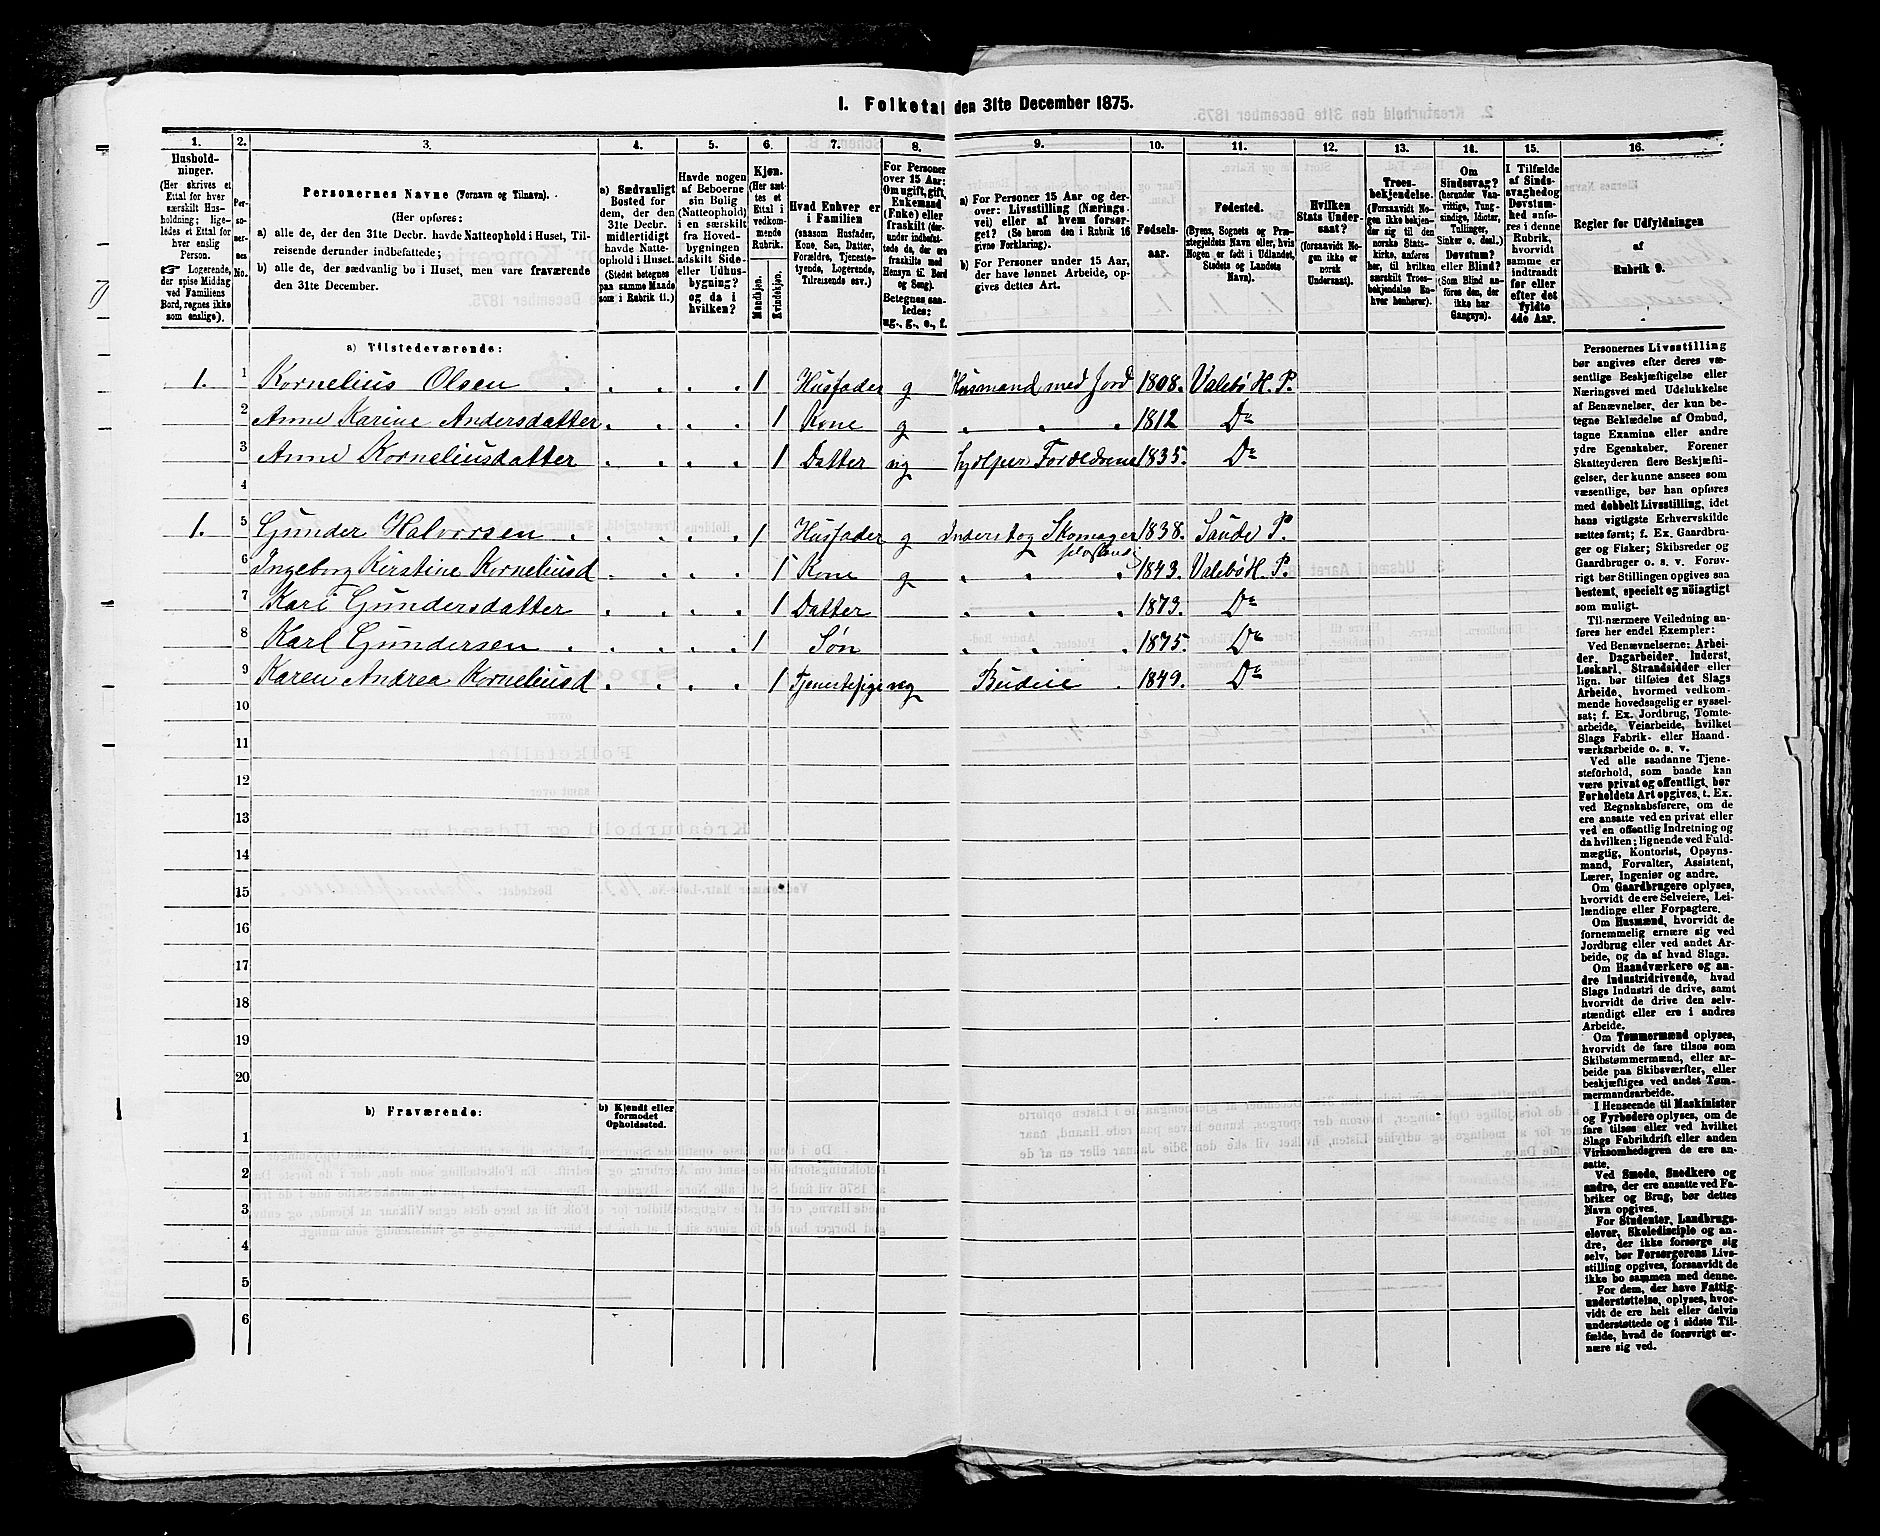 I. Folketal den 31te December 1875.
1. 2. 3. 4. 5. 6. 7. 8. 9. 10. 11. 12. 13. 14. 15. 16.
Husholdninger.
(Her skrives et Ettal for hver særskilt Husholdning; ligeledes et Ettal for hver enslig Person.
☞ Logerende, der spise Middag ved Familiens Bord, regnes ikke som enslige).
Personernes No.
Personernes Navne (Fornavn og Tilnavn).
(Her opføres:
a) alle de, der den 31te Decbr. havde Natteophold i Huset, Tilreisende derunder indbefattede;
b) alle de, der sædvanlig bo i Huset, men vare fraværende den 31te December.
a) Sædvanligt Bosted for dem, der den 31te Decbr. midlertidigt havde Natteophold i Huset. (Stedet betegnes paa samme Maade som i Rubrik 11.)
Havde nogen af Beboerne sin Bolig (Natteophold) i en særskilt fra Hovedbygningen adskilt Side- eller Udhusbygning? og da i hvilken?
Kjøn. (Her sættes et Ettal i vedkommende Rubrik.
Mandkjøn.
Kvindekjøn.
Hvad Enhver er i Familien (saasom Husfader, Kone, Søn, Datter, Forældre, Tjenestetyende, Logerende, Tilreisende osv.)
For Personer over 15 Aar: Om ugift, gift, Enkemand (Enke) eller fraskilt (derunder indbefattede de, der ere fraskilte med Hensyn til Bord og Seng). Betegnes saaledes: ug., g., e., f.
a) For Personer 15 Aar og derover: Livsstilling (Næringsvei) eller af hvem forsørget? (Se herom den i Rubrik 16 givne Forklaring).
b) For Personer under 15 Aar, der have lønnet Arbeide, opgives dettes Art.
Fødselsaar.
Fødested.
(Byens, Sognets og Præstegjeldets Navn eller, hvis Nogen er født i Udlandet, Stedets og Landets Navn).
Hvilken Stats Undersaat? (forsaavidt Nogen ikke er norsk Undersaat).
Troesbekjendelse. (Forsaavidt Nogen ikke bekjender sig til den norske Statskirke, anføres her, til hvilken særskilt Troesbekjendelse Enhver henhører).
Om Sindssvag? (herunder Vanvittige, Tungsindige, Idioter, Tullinger, Sinker o. desl.) Døvstum? eller Blind? (Som Blind anføres den, der ikke har Gangsyn).
I Tilfælde af Sindssvaghed og Døvstumhed anføres i denne Rubrik, hvorvidt samme er indtraadt før eller efter det fyldte 4de Aar.
Regler for Udfyldningen af Rubrik 9.
a) Tilstedeværende:
1. 1 Kornelius Olsen 1 Husfader g Husmand med Jord 1808. Valebø H. P.
2 Anne Karine Andersdatter 1 Kone g 1812 Do
3 Anne Korneliusdatter 1 Datter ug hjælper Forældrene 1835. Do
4
1. 5 Gunder Halvorsen 1 Husfader g Inderst og Skomager 1838. Saude P.
6 Ingeborg Kirstine Korneliusd 1 Kone g 1843. Valebø H. P.
7 Kari Gundersdatter 1 Datter 1873. Do
8 Karl Gundersen 1 Søn 1875. Do
9 Karen Andrea Korneliusd 1 Tjenestepige ug Budeie 1849. Do
10
11
12
13
14
15
16
17
18
19
20
b) Fraværende:
b) Kjendt eller formodet Opholdssted.
1
2
3
4
5
6
Personernes Livsstilling
bør angives efter deres væ-
sentlige Beskjæftigelse eller
Næringsvei med Udelukkelse
af Benævnelser, der kun be-
tegne Bekledelse af Ombud,
tagne Examina eller andre
ydre Egenskaber. Forener
Skatteyderen flere Beskjæfti-
gelser, der kunne ansees som
væsentlige, bør han opføres
med dobbelt Livsstilling, idet
hans vigtigste Erhvervskilde
sættes først; f. Ex. Gaardbru-
ger og Fisker; Skibsreder og
Gaardbruger o. s. v. Forøv-
rigt bør Stillingen opgives saa
bestemt, specielt og nöiagtigt
som muligt.
Til nærmere Veiledning an-
føres her endel Exempler:
Ved Benævnelserne: Arbei-
der, Dagarbeider, Inderst,
Løskarl, Strandsidder eller
lign. bør tilføies det Slags
Arbeide, hvormed vedkom-
mende hovedsagelig er syssel-
sat; f. Ex. Jordbrug, Tomte-
arbeide, Veiarbeide, hvilket
Slags Fabrik- eller Haand-
værksarbeide o. s. v.
Ved alle saadanne Tjene-
steforhold, som baade kan
være privat og offentligt, bør
Forholdets Art opgives, t. Ex.
ved Regnskabsførere, om de
ere ansatte ved en privat eller
ved en offentlig Indretning og
da hvilken; lignende ved Fuld-
mægtig, Kontorist, Opsyns-
mand, Forvalter, Assistent,
Lærer, Ingeniør og andre.
Om Gaardbrugere oplyses,
hvorvidt de ere Selveiere, Lei-
lændinge eller Forpagtere.
Om Husmænd, hvorvidt de
fornemmelig ernære sig ved
Jordbrug eller ved andet Ar-
beide, og da af hvad Slags.
Om Haandværkere og an-
dre Industridrivende, hvad
Slags Industri de drive, samt
hvorvidt de drive den selv-
stændigt eller ere i andres
Arbeide.
Om Tømmermænd oplyses,
hvorvidt de fare tilsøs som
Skibstømmermænd, eller ar-
beide paa Skibsværfter, eller
beskjæftiges ved andet Tøm-
mermandsarbeide.
I Henseende til Maskinister
og Fyrbødere oplyses, om de
fare tilsøs eller ved hvilket
Slags Fabrikdrift eller anden
Virksomhedsgren de ere an-
satte.
Ved Smede, Snedkere og
andre, der ere ansatte ved Fa-
briker og Brug, bør dettes
Navn opgives.
For Studenter, Landbrugs-
elever, Skoledisciple og an-
dre, der ikke forsørge sig
selv, bør Forsørgerens Livs-
stilling opgives, forsaavidt de
ikke bo sammen med denne.
For dem, der have Fattig-
understøttelse, oplyses, hvor-
vidt de ere helt eller delvis
understøttede og i sidste Til-
fælde, hvad de forøvrigt er-
nære sig ved.